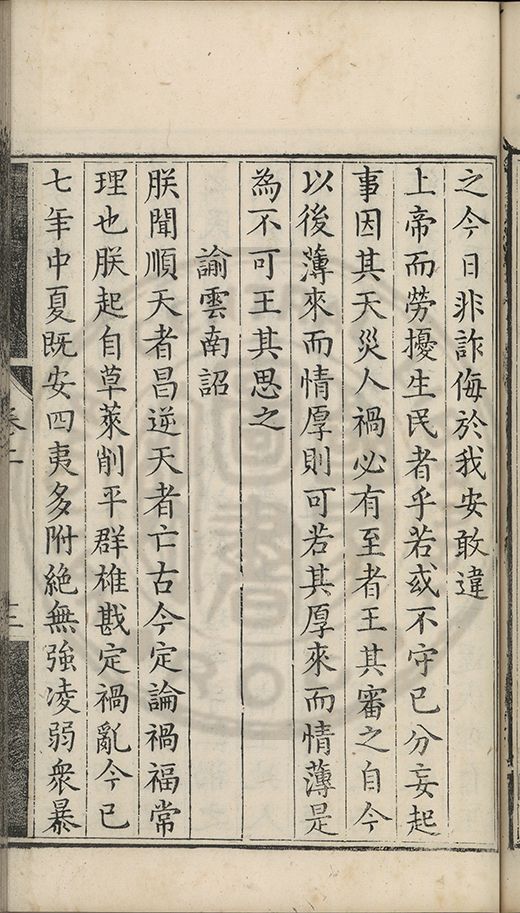 之今日非詐侮於我安敢違
上帝而勞擾生民者乎若或不守已分妄起
事因其天災人禍必有至者王其審之自今
以後薄來而情厚則可若其厚來而情薄是
為不可王其思之
諭雲南詔
朕聞順天者昌逆天者亡古今定論禍福常
理也朕起自草萊削平群雄戡定禍亂今已
七年中夏既安四夷多附絕無強凌弱衆暴
卷二
三